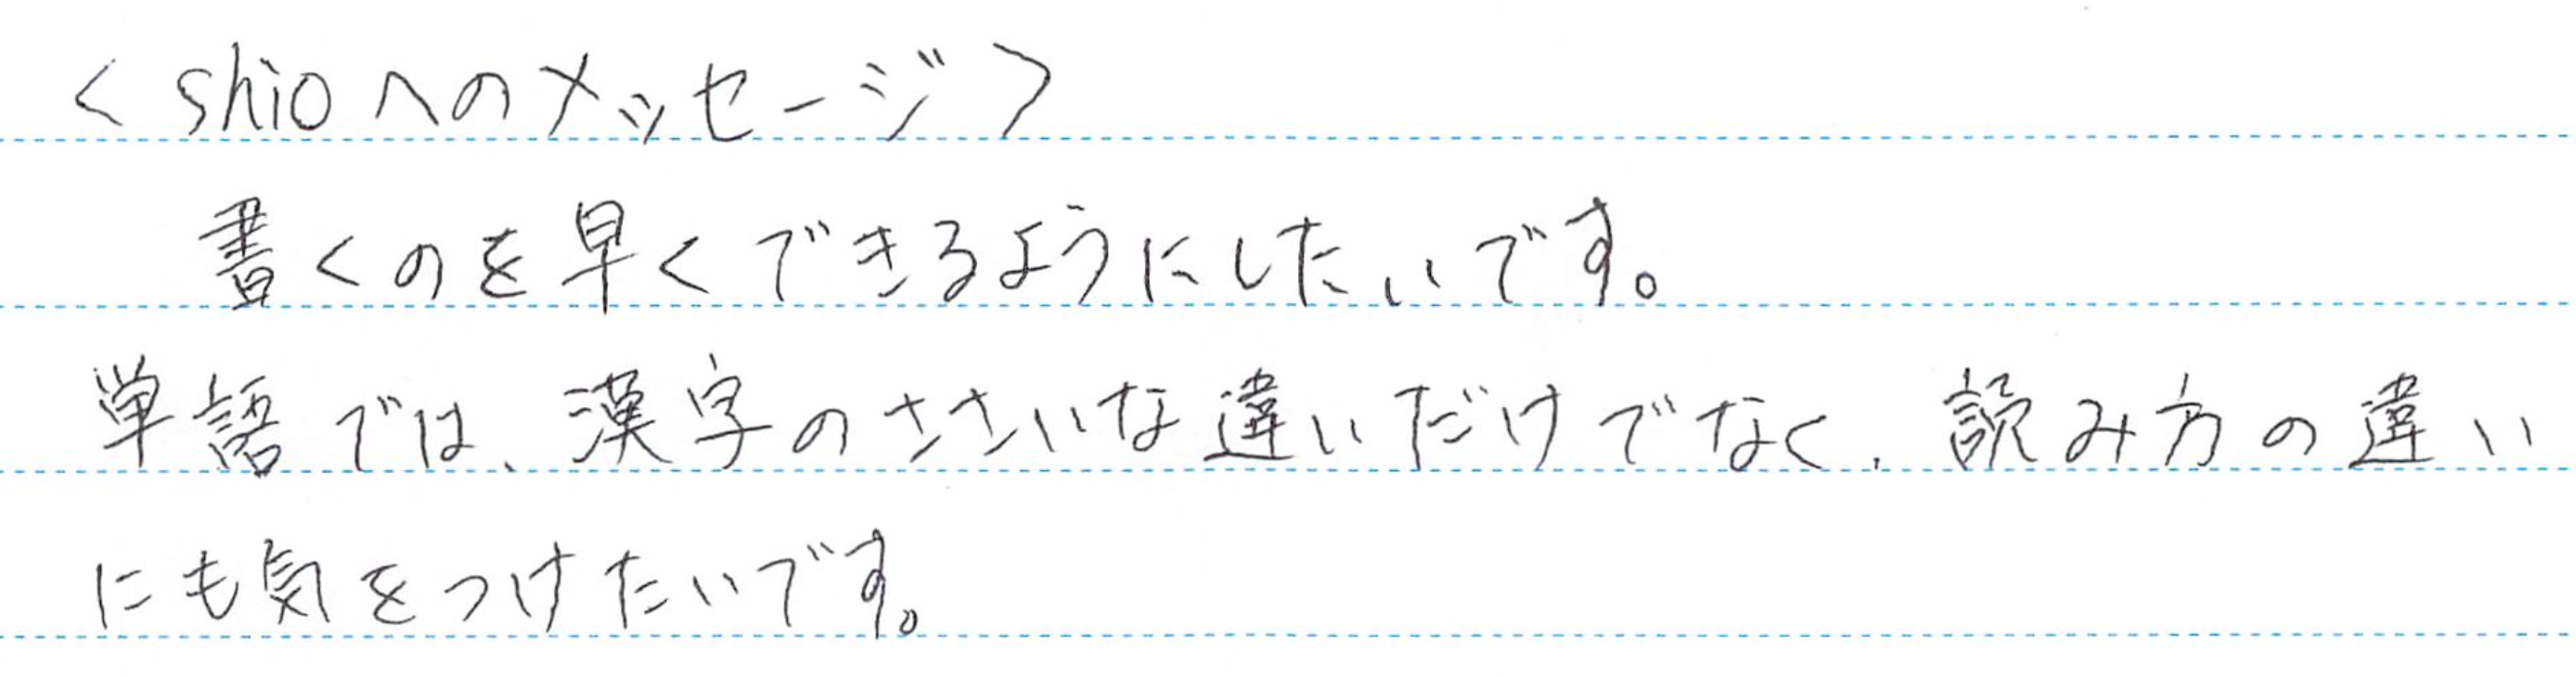 <shioへのメッセージ>
書くのを早くできるようにしたいです。
単語では、漢字のささいな違いだけでなく、読み方の違い
にも気をつけたいです。